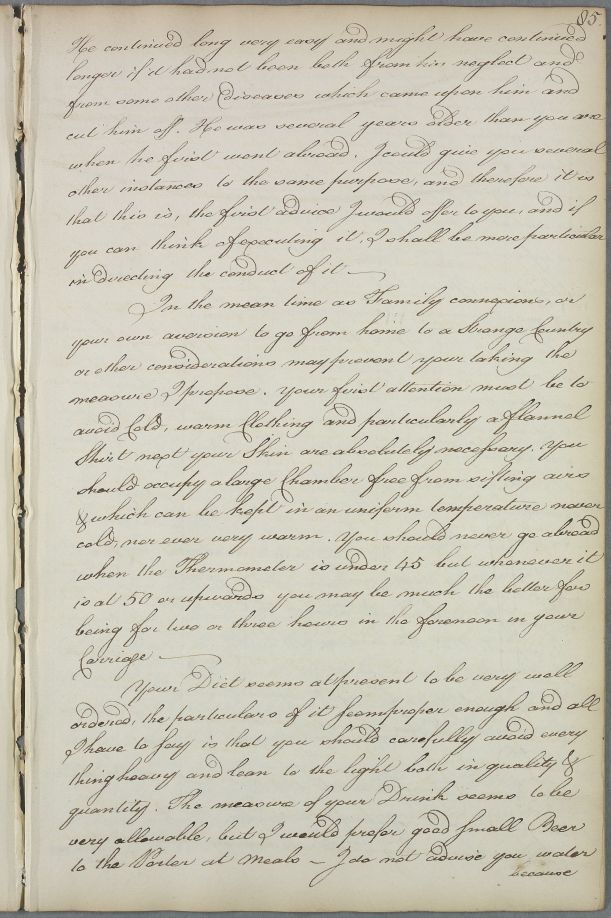 85.
He continued long very easy and might have continued
longer if it had not been both from his neglect and
from some other Diseases which came upon him and
cut him off. He was several years older than you are
when he first went abroad. I could give you several
other instances to the same purpose, and therefore it is
that this is, the first advice I would offer to you, and if
you can think of executing it, I shall be more particular
in directing the conduct of it —
In the mean time as Family connexions, or
your own aversion to go from home to a Strange Country
or other considerations may prevent your taking the
measure I propose. Your first attention must be to
avoid Cold, warm Clothing and particularly a flannel
Shirt next your Skin are absolutely necessary. You
should occupy a large Chamber free from sifting airs
& which can be kept in an uniform temperature never
cold, nor ever very warm. You should never go abroad
when the Thermometer is under 45 but whenever it
is at 50 or upwards you may be much the better for
being for two or three hours in the forenoon in your
Carriage —
Your Diet seems at present to be very well
ordered, the particulars of it seem proper enough and all
I have to say is that you should carefully avoid every
thing heavy and lean to the light both in quality &
quantity. The measure of your Drink seems to be
very allowable, but I would prefer good small Beer
to the Porter at Meals — I do not advise you water
because